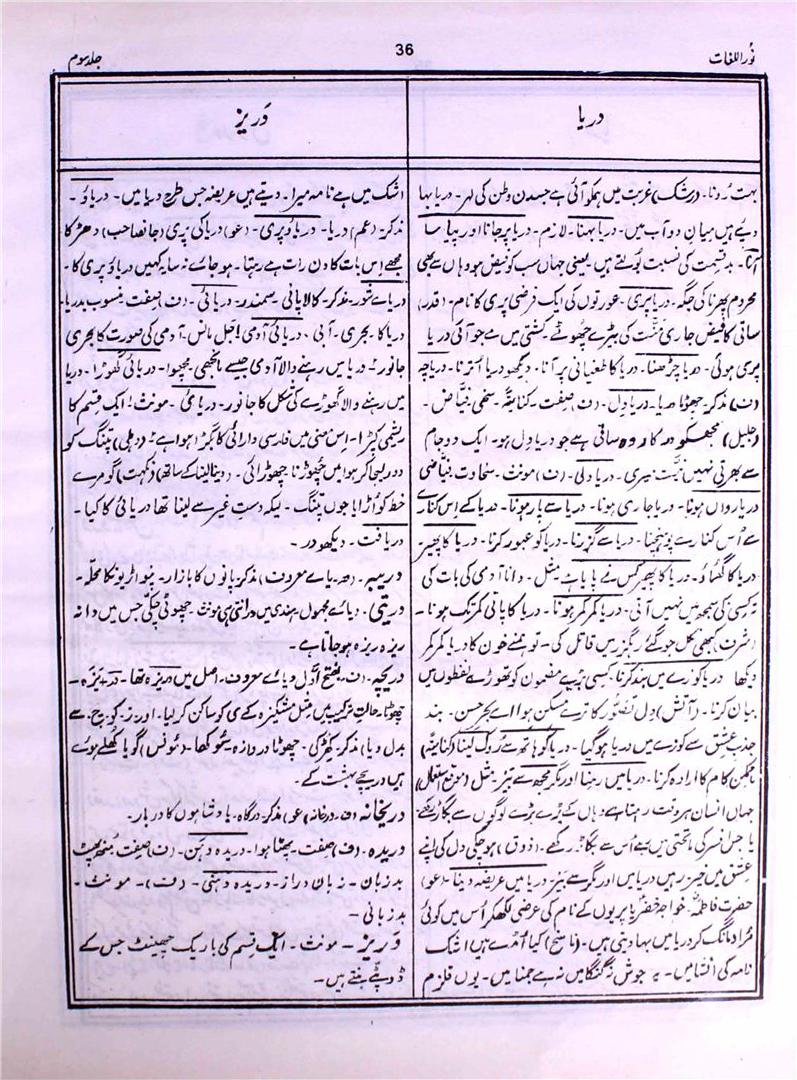 نُور اللغات
36
جلد سوم
دریا
وَریز
بہت رُونا۔ (رشک) غربت میں ہمکو آئی ہے جسدن وطن کی لہر۔ دریا بہا
دیے ہیں میان دو آب میں۔ دریا بہنا۔ لازم۔ دریا پر جانا اور پیاسا
آنا۔ بد قسمت کی نسبت بولتے ہیں یعنی جہاں سب کو فیض ہو وہاں سے بھی
محروم پھرنا کی جگہ۔ دریا پری۔ عورتوں کی ایک فرضی پری کا نام۔ (قدر)
ساقی کا فیض جاری منّت کی بیڑے چھوٹے کشتی میں ہے جو آئی دریا
پری ہوئی۔ دریا چڑھنا۔ دریا کا طغیانی پر آنا۔ دیکھو دریا اُترنا۔ دریاچہ
(ف) مذکر۔ چھوٹا دریا۔ دریا دِل۔ (ف) صفت۔ کنایۃً۔ سخی۔ فیّاض۔
(جلیل) مجھکو درکار وہ ساقی ہے جو دریا دل ہو۔ ایک دو جام
سے بھرتی نہیں نیّت میری۔ دریا دلی۔ (ف) مونث۔ سخاوت۔ فیّاضی
دریا رواں ہونا۔ دریا جاری ہونا۔ دریا سے پار ہونا۔ دریا کے اِس کنارے
سے اُس کنارے پر پہنچنا۔ دریا سے گزرنا۔ دریا کو عبور کرنا۔ دریا کا پھیر
دریا کا گھماؤ۔ دریا کا پھیر کس نے پایا ہے مثل۔ دانا آدمی کی بات کی
تہ کسی کی سمجھ میں نہیں آتی۔ دریا کمر کمر ہونا۔ دریا کا پانی کمر تک ہونا۔
(شرف) کبھی نکل جو گئے رہگزر میں قاتل کی۔ تو ہمنے خون کا دریا کمر کمر
دیکھا دریا کوزے میں بند کرنا۔ کسی بڑے مضمون کو تھوڑے لفظوں میں
بیان کرنا۔ (آتش) دل تصوّر کا ترے مسکن ہوا اے بحر حسن۔ بند
جذب عشق سے کوزے میں دریا ہوگیا۔ دریا کو ہاتھ سے رُوک لینا (کنایۃً)
ناممکن کام کا ارادہ کرنا۔ دریا میں رہنا اور مگر مچھ سے بیر۔ مثل (موقع استعمال)
جہاں انسان ہر وقت رہتا ہے وہاں کے بڑے بڑے لوگوں سے بگاڑ رکھے
یا جس افسر کی ماتحتی میں ہے اُس سے بگاڑ رکھے۔ (ذوق) ہوچکی دل کی اپنے
عشق میں خیر۔ رہیں دریا میں اور مگر سے بیر۔ دریا میں عریضہ دینا۔ (عو)
حضرت فاطمہؓ خواجہ خضرؑ یا پریوں کے نام کی عرضی لکھکر اُس میں کوئی
مُراد مانگ کر دریا میں بہا دیتی ہیں۔ (ناسخ) کیا اُمڈے ہیں اشک
نامہ کی انشا میں۔ یہ جوش نہ گنگا میں نہ ہے جمنا میں۔ یوں قلزم
اشک میں ہے نامہ میرا۔ دیتے ہیں عریضہ جس طرح دریا میں۔ دریاؤ۔
مذکر۔ (عم) دریا۔ دریاؤ پری۔ (عو) دریا کی پری (جانصاحب) دھڑکا
مجھے اِس بات کا دن رات ہے رہتا۔ ہو جائے نہ سایہ کہیں دریاؤ پری کا۔
دریائے شور۔ مذکر۔ کالا پانی۔ سمندر۔ دریائی۔ (ف) صفت منسوب بدریا۔
دریا کا۔ بحری۔ آبی۔ دریائی آدمی ا جل مانس۔ آدمی کی صورت کا بحری
جانور۔ دریا میں رہنے والا آدمی جیسے مانجھی مچھوا۔ دریائی گھوڑا۔ دریا
میں رہنے والا گھوڑے کی شکل کا جانور۔ دریائی۔ مونث ا ایک قسم کا
ریشمی کپڑا۔ اِس معنی میں فارسی دارائی کا بگڑا ہوا ہے (دہلی) پتنگ کو
دور لیجا کر ہوا میں چھوڑنا۔ چھوڑائی۔ (دینا لینا کے ساتھ) (نکہت) گو مرے
خط کو اُڑایا جوں پتنگ۔ لیک دستِ غیر سے لینا تھا دریائی کا کیا۔
دریافت۔ دیکھو در۔
دریبہ۔ (ھ۔ یائے معروف) مذکر۔ پانوں کا بازار۔ پنواڑیوں کا محلّہ۔
دریتی۔ (یائے مجہول ہندی میں درانتی) مونث۔ چھوٹی چکّی جس میں دانہ
ریزہ ریزہ ہو جاتا ہے۔
دریچہ۔ (ف۔ بفتح اوّل ویائے معروف۔ اصل میں دریزہ تھا۔ در+یزہ۔
چھوٹا۔ حالت ترکیب میں مثل مشکیزہ کے ی کو ساکن کرلیا۔ اور ز کو چ سے
بدل دیا) مذکر۔ کھڑکی۔ چھوٹا دروازہ۔ سُوکھا۔ (مونس) گویا کھلے ہوئے
ہیں دریچے بہشت کے۔
دریخانہ (ف۔ درخانہ) (عو) مذکر۔ درگاہ۔ بادشاہوں کا دربار۔
دریدہ۔ (ف) صفت۔ پھٹا ہوا۔ دریدہ دہن۔ (ف) صفت۔ منھ پھٹ
بد زبان۔ زبان دراز۔ دریدہ دہنی۔ (ف)۔ مونث۔
بد زبانی۔
دَریز۔ مونث۔ ایک قسم کی باریک چھینٹ جس کے
ڈوپٹے بنتے ہیں۔